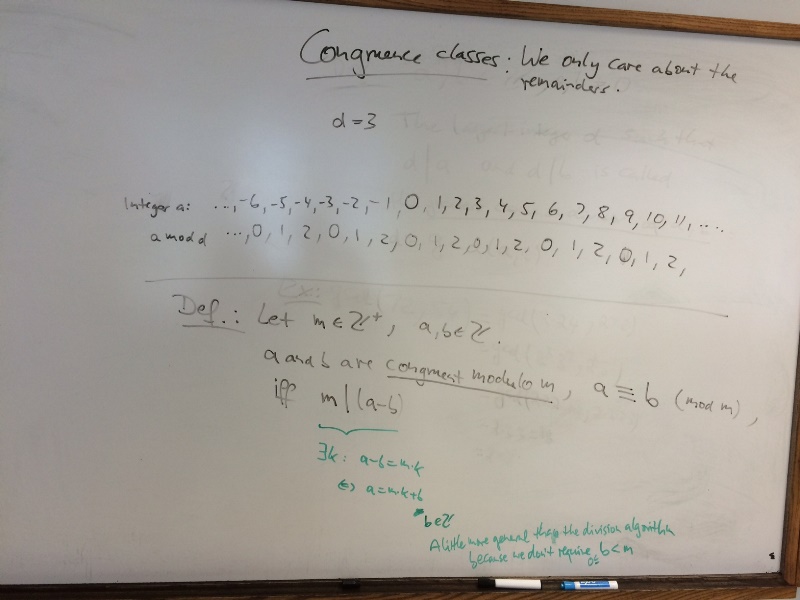 Congruence classes: We only care about the
remainders.
d=3
Integer a: ..., -6, -5, -4, -3, -2, -1, 0, 1, 2, 3, 4, 5, 6, 7, 8, 9, 10, 11, ....
a mod d ..., 0, 1, 2, 0, 1, 2, 0, 1, 2, 0, 1, 2, 0, 1, 2, 0, 1, 2,
Def.: Let m∈ℤ⁺, a,b∈ℤ.
a and b are congruent modulo m, a≡b (mod m),
iff m|(a-b)
∃k: a-b=m·k
⇔ a=m·k+b
b∈ℤ
A little more general than the division algorithm
because we don't require 0≤b<m